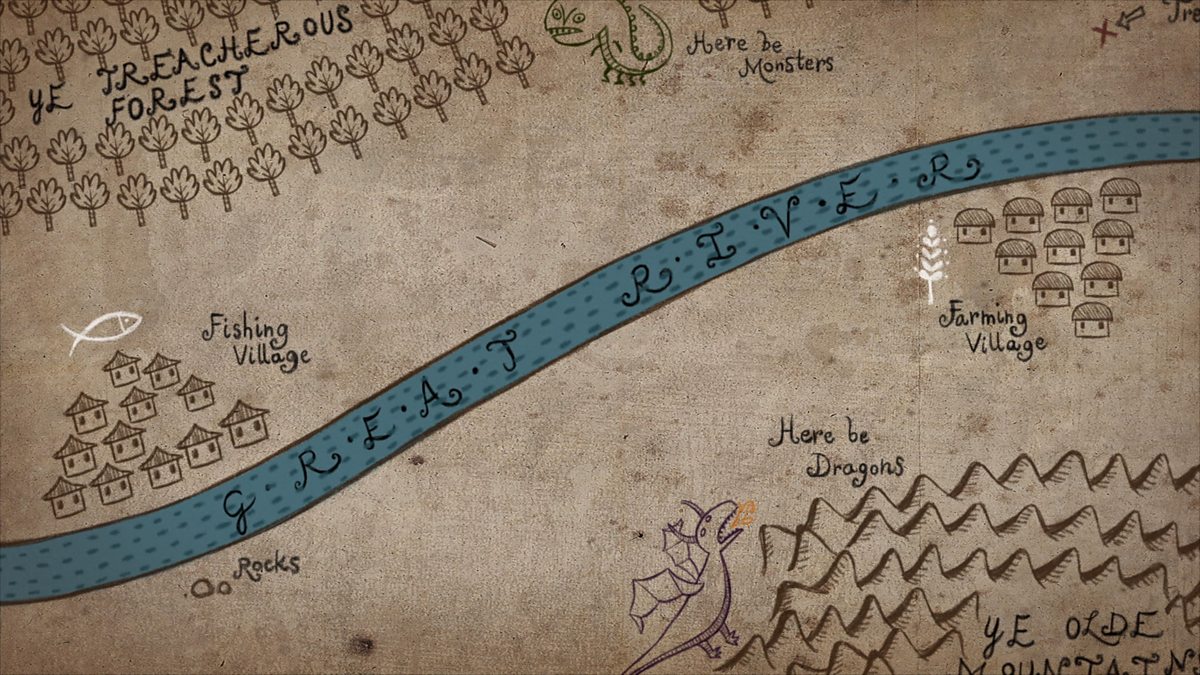 YE TREACHEROUS
FOREST
Here be
Monsters
GREAT RIVER
Fishing
Village
Farming
Village
Here be
Dragons
Rocks
YE OLDE
MOUNTAINS